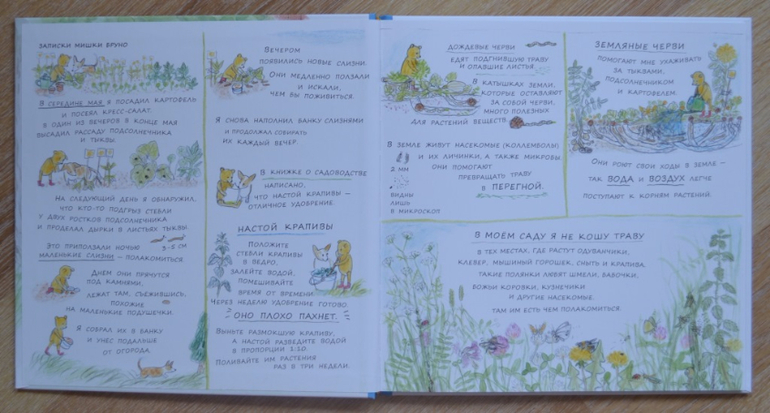 ЗАПИСКИ МИШКИ БРУНО
В СЕРЕДИНЕ МАЯ Я ПОСАДИЛ КАРТОФЕЛЬ
И ПОСЕЯЛ КРЕСС-САЛАТ.
В ОДИН ИЗ ВЕЧЕРОВ В КОНЦЕ МАЯ
ВЫСАДИЛ РАССАДУ ПОДСОЛНЕЧНИКА
И ТЫКВЫ.
НА СЛЕДУЮЩИЙ ДЕНЬ Я ОБНАРУЖИЛ,
ЧТО КТО-ТО ПОДГРЫЗ СТЕБЛИ
У ДВУХ РОСТКОВ ПОДСОЛНЕЧНИКА
И ПРОДЕЛАЛ ДЫРКИ В ЛИСТЬЯХ ТЫКВЫ.
ЭТО ПРИПОЛЗАЛИ НОЧЬЮ
3-5 СМ
МАЛЕНЬКИЕ СЛИЗНИ – ПОЛАКОМИТЬСЯ
ДНЁМ ОНИ ПРЯЧУТСЯ
ПОД КАМНЯМИ,
ЛЕЖАТ ТАМ, СЪЁЖИВШИСЬ,
ПОХОЖИЕ
НА МАЛЕНЬКИЕ ПОДУШЕЧКИ.
Я СОБРАЛ ИХ В БАНКУ
И УНЁС ПОДАЛЬШЕ
ОТ ОГОРОДА.
ВЕЧЕРОМ
ПОЯВИЛИСЬ НОВЫЕ СЛИЗНИ.
ОНИ МЕДЛЕННО ПОЛЗАЛИ
И ИСКАЛИ,
ЧЕМ БЫ ПОЖИВИТЬСЯ.
Я СНОВА НАПОЛНИЛ БАНКУ СЛИЗНЯМИ
И ПРОДОЛЖАЛ СОБИРАТЬ
ИХ КАЖДЫЙ ВЕЧЕР.
В КНИЖКЕ О САДОВОДСТВЕ
НАПИСАНО,
ЧТО НАСТОЙ КРАПИВЫ –
ОТЛИЧНОЕ УДОБРЕНИЕ.
НАСТОЙ КРАПИВЫ
ПОЛОЖИТЕ
СТЕБЛИ КРАПИВЫ
В ВЕДРО,
ЗАЛЕЙТЕ ВОДОЙ,
ПОМЕШИВАЙТЕ
ВРЕМЯ ОТ ВРЕМЕНИ
ЧЕРЕЗ НЕДЕЛЮ УДОБРЕНИЕ ГОТОВО
ОНО ПЛОХО ПАХНЕТ.
ВЫНЬТЕ РАЗМОКШУЮ КРАПИВУ,
А НАСТОЙ РАЗВЕДИТЕ ВОДОЙ
В ПРОПОРЦИИ 1:10.
ПОЛИВАЙТЕ ИМ РАСТЕНИЯ
РАЗ В ТРИ НЕДЕЛИ.
ДОЖДЕВЫЕ ЧЕРВИ
ЕДЯТ ПОДГНИВШУЮ ТРАВУ
И ОПАВШИЕ ЛИСТЬЯ.
В КАТЫШКАХ ЗЕМЛИ,
КОТОРЫЕ ОСТАВЛЯЮТ
ЗА СОБОЙ ЧЕРВИ,
МНОГО ПОЛЕЗНЫХ
ДЛЯ РАСТЕНИЙ ВЕЩЕСТВ.
В ЗЕМЛЕ ЖИВУТ НАСЕКОМЫЕ (КОЛЛЕМБОЛЫ)
И ИХ ЛИЧИНКИ, А ТАКЖЕ МИКРОБЫ.
ОНИ ПОМОГАЮТ
2 ММ
ПРЕВРАЩАТЬ ТРАВУ
В ПЕРЕГНОЙ.
ВИДНЫ
ЛИШЬ
В МИКРОСКОП
ЗЕМЛЯНЫЕ ЧЕРВИ
ПОМОГАЮТ МНЕ УХАЖИВАТЬ
ЗА ТЫКВАМИ,
ПОДСОЛНЕЧНИКОМ
И КАРТОФЕЛЕМ.
ОНИ РОЮТ СВОИ ХОДЫ В ЗЕМЛЕ –
ТАК ВОДА И ВОЗДУХ ЛЕГЧЕ
ПОСТУПАЮТ К КОРНЯМ РАСТЕНИЙ.
В МОЁМ САДУ Я НЕ КОШУ ТРАВУ
В ТЕХ МЕСТАХ, ГДЕ РАСТУТ ОДУВАНЧИКИ,
КЛЕВЕР, МЫШИНЫЙ ГОРОШЕК, СНЫТЬ И КРАПИВА.
ТАКИЕ ПОЛЯНКИ ЛЮБЯТ ШМЕЛИ, БАБОЧКИ,
БОЖЬИ КОРОВКИ, КУЗНЕЧИКИ
И ДРУГИЕ НАСЕКОМЫЕ.
ТАМ ИМ ЕСТЬ ЧЕМ ПОЛАКОМИТЬСЯ.